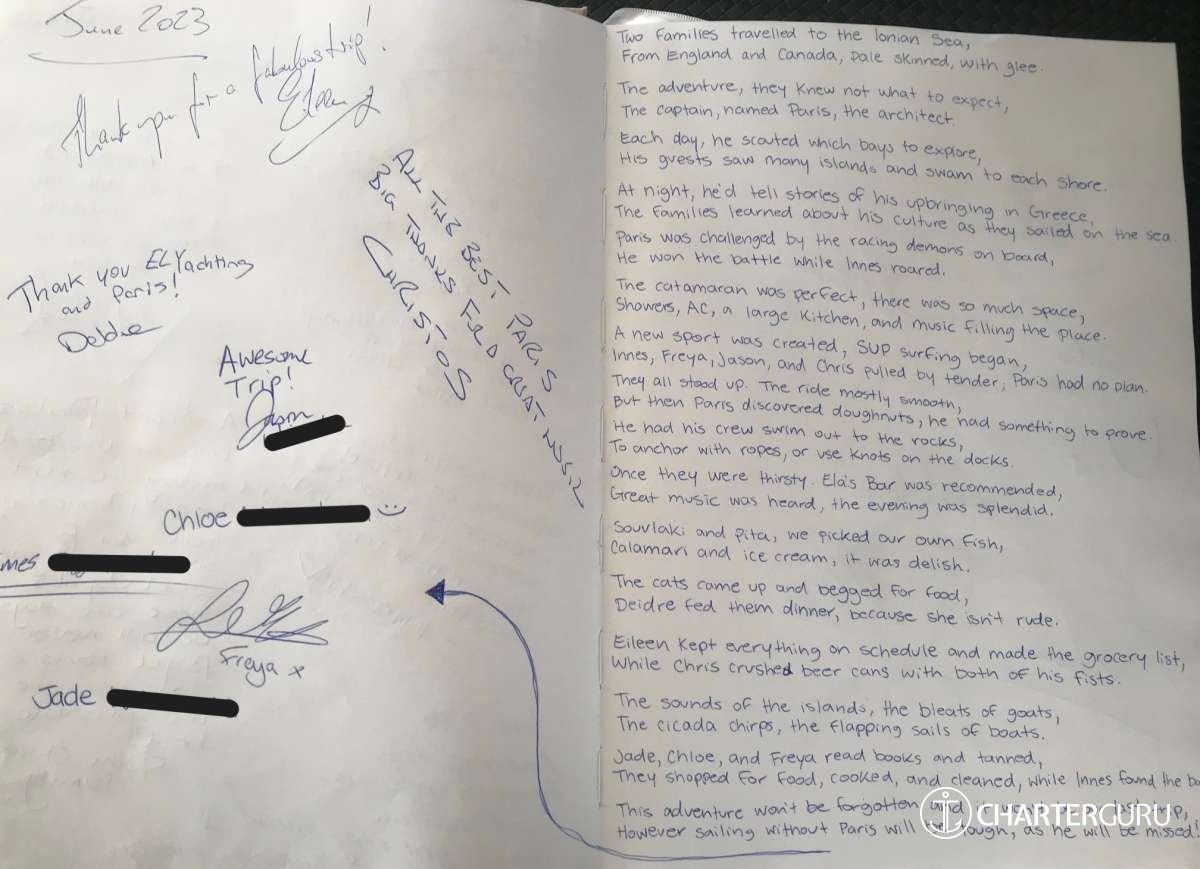 June 2023
Thank you for a fabulous trip!
Eileen
ALL THE BEST, PARIS
BIG THANKS FOR A GREAT
CHRISTOS
Thank you ELYachting
and Paris!
Awesome
Trip!
Jason
Chloe
Freya x
Jade
Two families travelled to the Ionian Sea,
From England and Canada, pale skinned, with glee.
The adventure, they knew not what to expect,
The captain, named Paris, the architect.
Each day, he scouted which bays to explore,
His guests saw many islands and swam to each shore.
At night, he'd tell stories of his upbringing in Greece,
The families learned about his culture as they sailed on the sea.
Paris was challenged by the racing demons on board,
He won the battle while Innes roared.
The catamaran was perfect, there was so much space,
Showers, AC, a large kitchen, and music filling the place.
A new sport was created, SUP surfing began,
Innes, Freya, Jason, and Chris pulled by tender, Paris had no plan.
They all stood up. The ride mostly smooth,
But then Paris discovered doughnuts, he had something to prove.
He had his crew swim out to the rocks,
To anchor with ropes, or use knots on the docks.
Once they were thirsty. Ela's Bar was recommended,
Great music was heard, the evening was splendid.
Souvlaki and pita, we picked our own fish,
Calamari and ice cream, it was delish.
The cats came up and begged for food,
Deidre fed them dinner, because she isn't rude.
Eileen kept everything on schedule and made the grocery list,
While Chris crushed beer cans with both of his fists.
The sounds of the islands, the bleats of goats,
The cicada chirps, the flapping sails of boats.
Jade, Chloe, and Freya read books and tanned,
They shopped for food, cooked, and cleaned, while Innes found the
This adventure won't be forgotten trip,
However sailing without Paris will be tough, as he will be missed!
CHARTERGURU